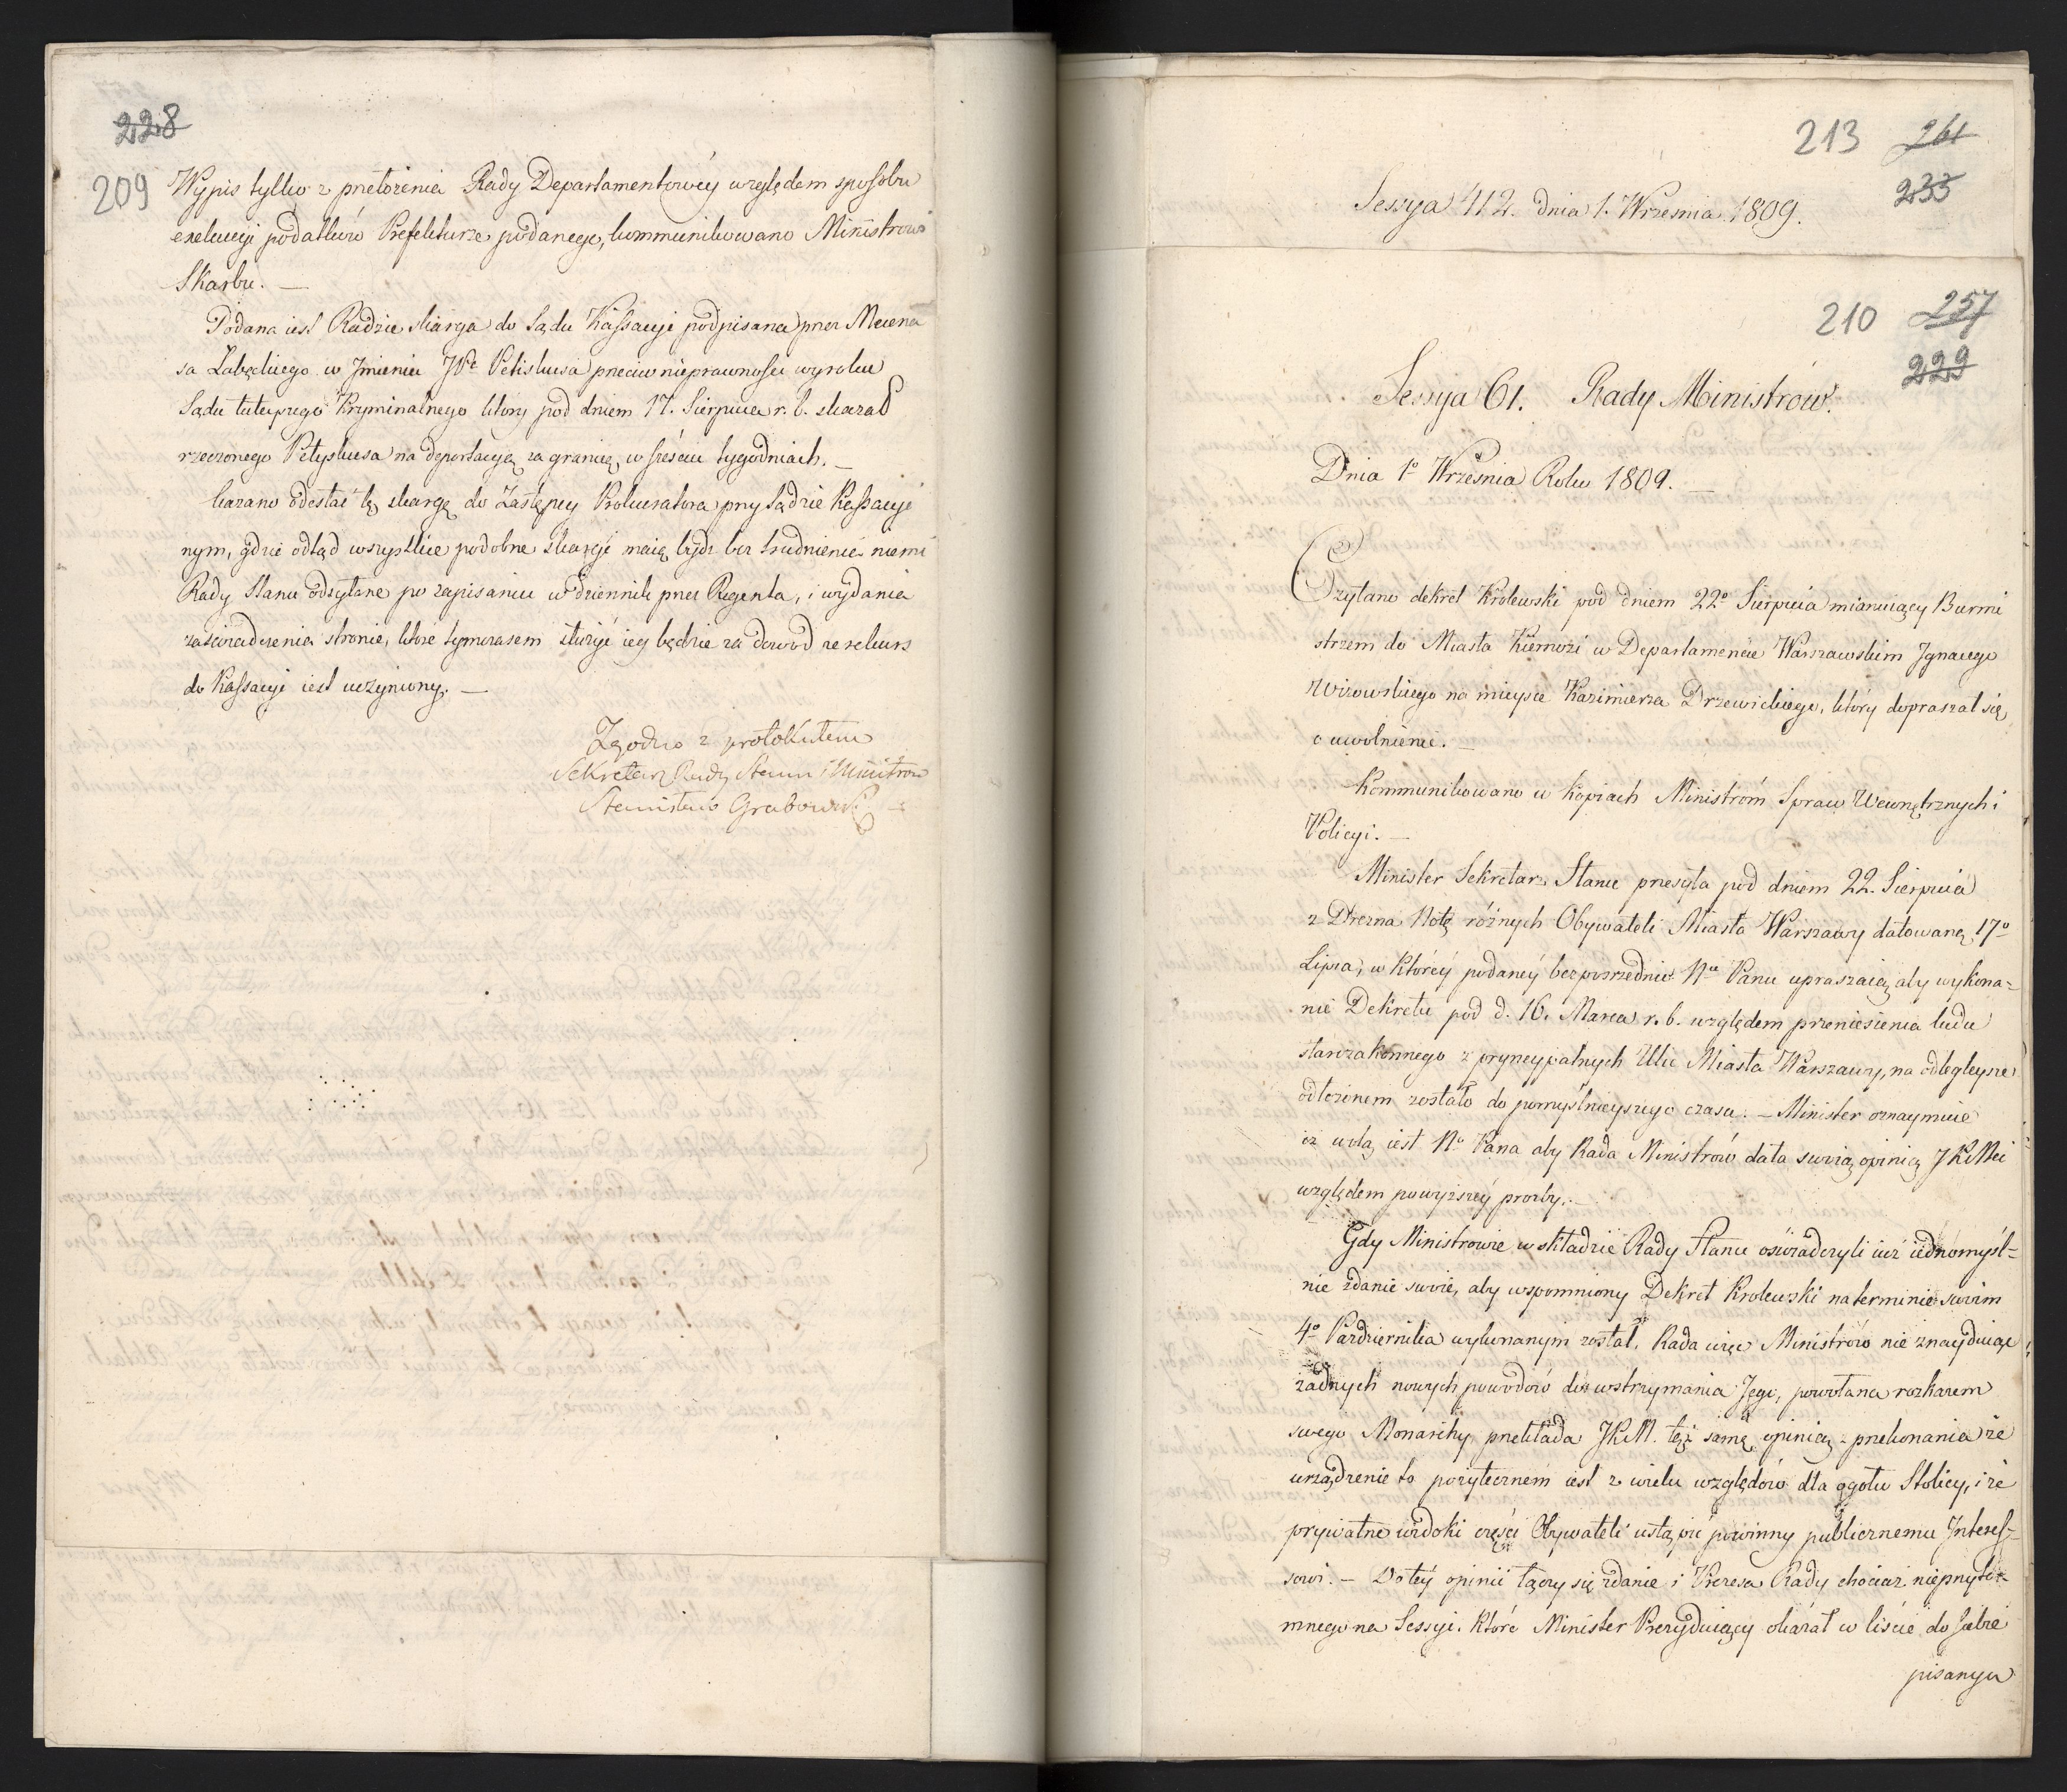 228
209
Wypis tylko z przełożenia Rady Departamentowéy względem sposobu
exekucyi podatków Prefekturze podanego, kommunikowano Ministrowi
Skarbu. —
Podana iest Radzie skarga do Sądu Kassacyi podpisana przez Mecena
sa Łabęckiego w Jmieniu JP. Petiskusa przeciw nieprawności wyroku
Sądu tuteyszego Kryminalnego który pod dniem 17. Sierpnia r. b. skazał
rzeczonego Petyskusa na deportacyą za granicę, w sześciu tygodniach. —
kazano odesłać tę skargę do Zastępcy Prokuratora przy Sądzie Kassacyi
nym, gdzie odtąd wszystkie podobne skargi maią bydź bez trudnienia niemi
Rady Stanu odsyłane po zapisaniu w dziennik przez Regenta, i wydania
zaświadczenia stronie, które tymczasem służyć iey będzie za dowód że rekurs
do Kassacyi iest uczyniony. —
Zgodno z protokułem
Sekretarz Rady Stanu i Ministrow
Stanisław Grabowski
213 261
233
Sessya 412. dnia 1. Września 1809.
210 257
229
Sessya 61. Rady Ministrów.
Dnia 1º Września Roku 1809. —
Czytano dekret Krolewski pod dniem 22º Sierpnia mianuiący Burmi
strzem do Miasta Kiernozi w Departamencie Warszawskim Jgnacego
Wizowskiego na mieysce Kazimierza Drzewickiego, który dopraszał się
o uwolnienie. —
Kommunikowano w kopiach Ministrom Spraw Wewnętrznych i
Policyi. —
Minister Sekretarz Stanu przesyła pod dniem 22. Sierpnia
z Drezna Notę różnych Obywateli Miasta Warszawy datowaną 17º
Lipca, w któréy podanéy bezpośrednio Nu Panu upraszaią aby wykona=
nie Dekretu pod d. 16. Marca r. b. względem przeniesienia ludu
starozakonnego z pryncypalnych Ulic Miasta Warszawy, na odlegleysze
odłożonem zostało do pomyślnieyszego czasu. — Minister oznaymuie
iż wolą iest No Pana aby Rada Ministrów dała swoią opinią JKMci
względem powyższéy prośby. —
Gdy Ministrowie w składzie Rady Stanu oświadczyli iuż iednomyśl=
nie zdanie swoie, aby wspomniony Dekret Krolewski na terminie swoim
4º Października wykonanym został, Rada więc Ministrów nie znayduiąc
żadnych nowych powodów do wstrzymania Jego, powołana rozkazem
swego Monarchy, przekłada JKM. też samę opinią przekonania że
urządzenie to pożytecznem iest z wielu względów dla ogołu Stolicy, i że
prywatne widoki części Obywateli ustąpić powinny publicznemu Jnteres=
sowi. — Do téy opinii łączy się zdanie i Prezesa Rady chociaż nieprzyto=
mnego na Sessyi, które Minister Prezyduiący okazał w liście do siebie
pisanym